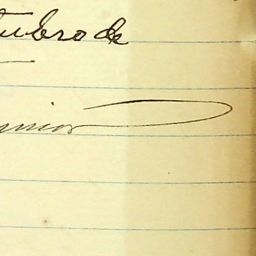 tubro de
unior